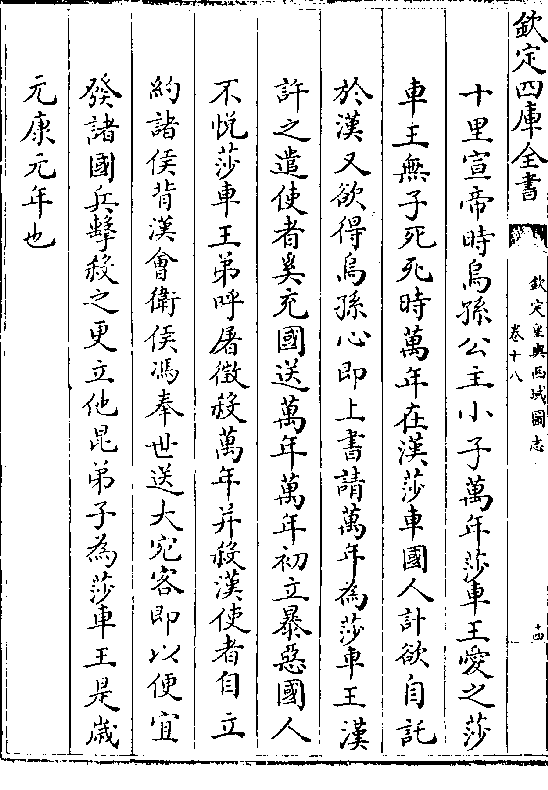 欽定四庫全書
欽定皇輿西域圖志
卷十八
十四
十里宣帝時烏孫公主小子萬年莎車王愛之莎
車王無子死死時萬年在漢莎車國人計欲自託
於漢又欲得烏孫心即上書請萬年為莎車王漢
許之遣使者奚充國送萬年萬年初立暴惡國人
不悦莎車王弟呼屠徵殺萬年并殺漢使者自立
約諸侯背漢會衛侯馮奉世送大宛客即以便宜
發諸國兵擊殺之更立他昆弟子為莎車王是歲
元康元年也